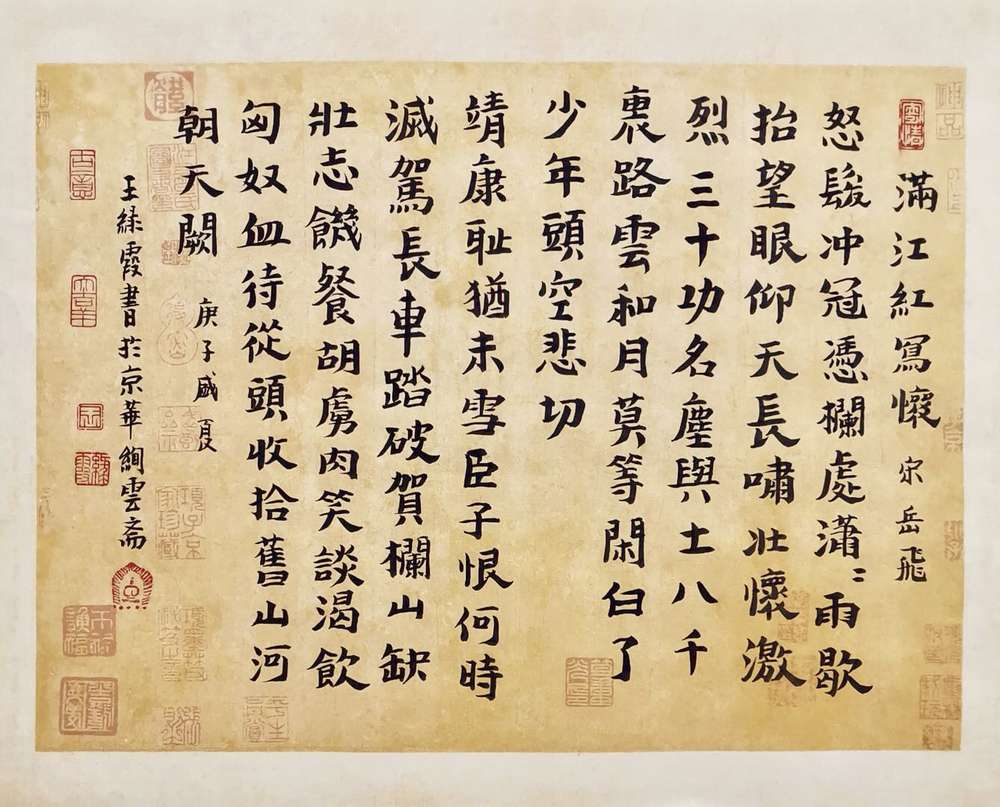 滿江紅寫懷 宋岳飛
怒髮冲冠憑欄處瀟〻雨歇
抬望眼仰天長嘯壯懷激
烈三十功名塵與土八千
裏路雲和月莫等閑白了
少年頭空悲切
靖康耻猶未雪臣子恨何時
滅駕長車踏破賀欄山缺
壯志饑餐胡虜肉笑談渴飲
匈奴血待從頭收拾舊山河
朝天闕 庚子盛夏
王綠霞書於京華絢雲斋
古意
項子京家珍藏